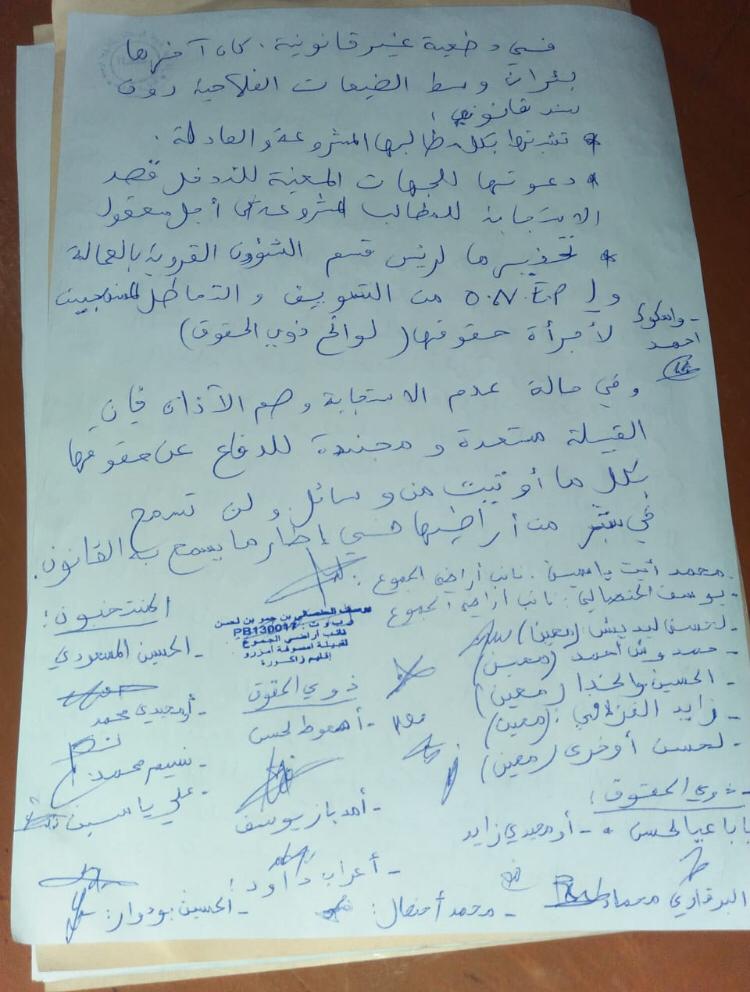 في وضعية غير قانونية. كان آخرها
بئران وسط الضيعات الفلاحية دون
سند قانوني؛
* تشبثها بكل مطالبها المشروعة والعادلة.
* دعوتها للجهات المعنية للتدخل قصد
الاستجابة للمطالب المشروعة في أجل معقول
* تحذيرها لرئيس قسم الشؤون القروية بالعمالة
ول O.N.E.P من التسويف والتماطل الممنهجين
لأجرأة حقوقها (لوائح ذوي الحقوق)
احمد
وفي حالة عدم الاستجابة وصم الآذان فإن
القبيلة مستعدة ومجندة للدفاع عن حقوقها
بكل ما أوتيت من وسائل ولن تسمح
في شبر من أراضيها في إطار ما يسمح به القانون.
- محمد أيت ياسين. نائب أراضي الجموع:
- يوسف الحنصالي: نائب أراضي الجموع
المنتخبون:
يوسف الحنصالي بن حمو بن لحسن
ر.ب.و.ت: PB130017
نائب أراضي الجموع
لقبيلة امصوفة أمزرو
إقليم زاكورة
- لحسن ليديش (معين)
- حمدوش أحمد (معين)
- الحسين والخدا (معين)
- زايد الغزلاني: (معين)
- لحسن أوخرى (معين)
- الحسين المسعودي
- أمجدي محمد
- نسيم محمد:
- علي ياسين
ذوي الحقوق
- أهموط لحسن
- أمد باز يوسف
- أعراب داود:
- الحسين بودوار:
- ذوي الحقوق:
بابا عيا لحسن
- أومجدي زايد
البرقاوي محماد
- محمد أحنصال: